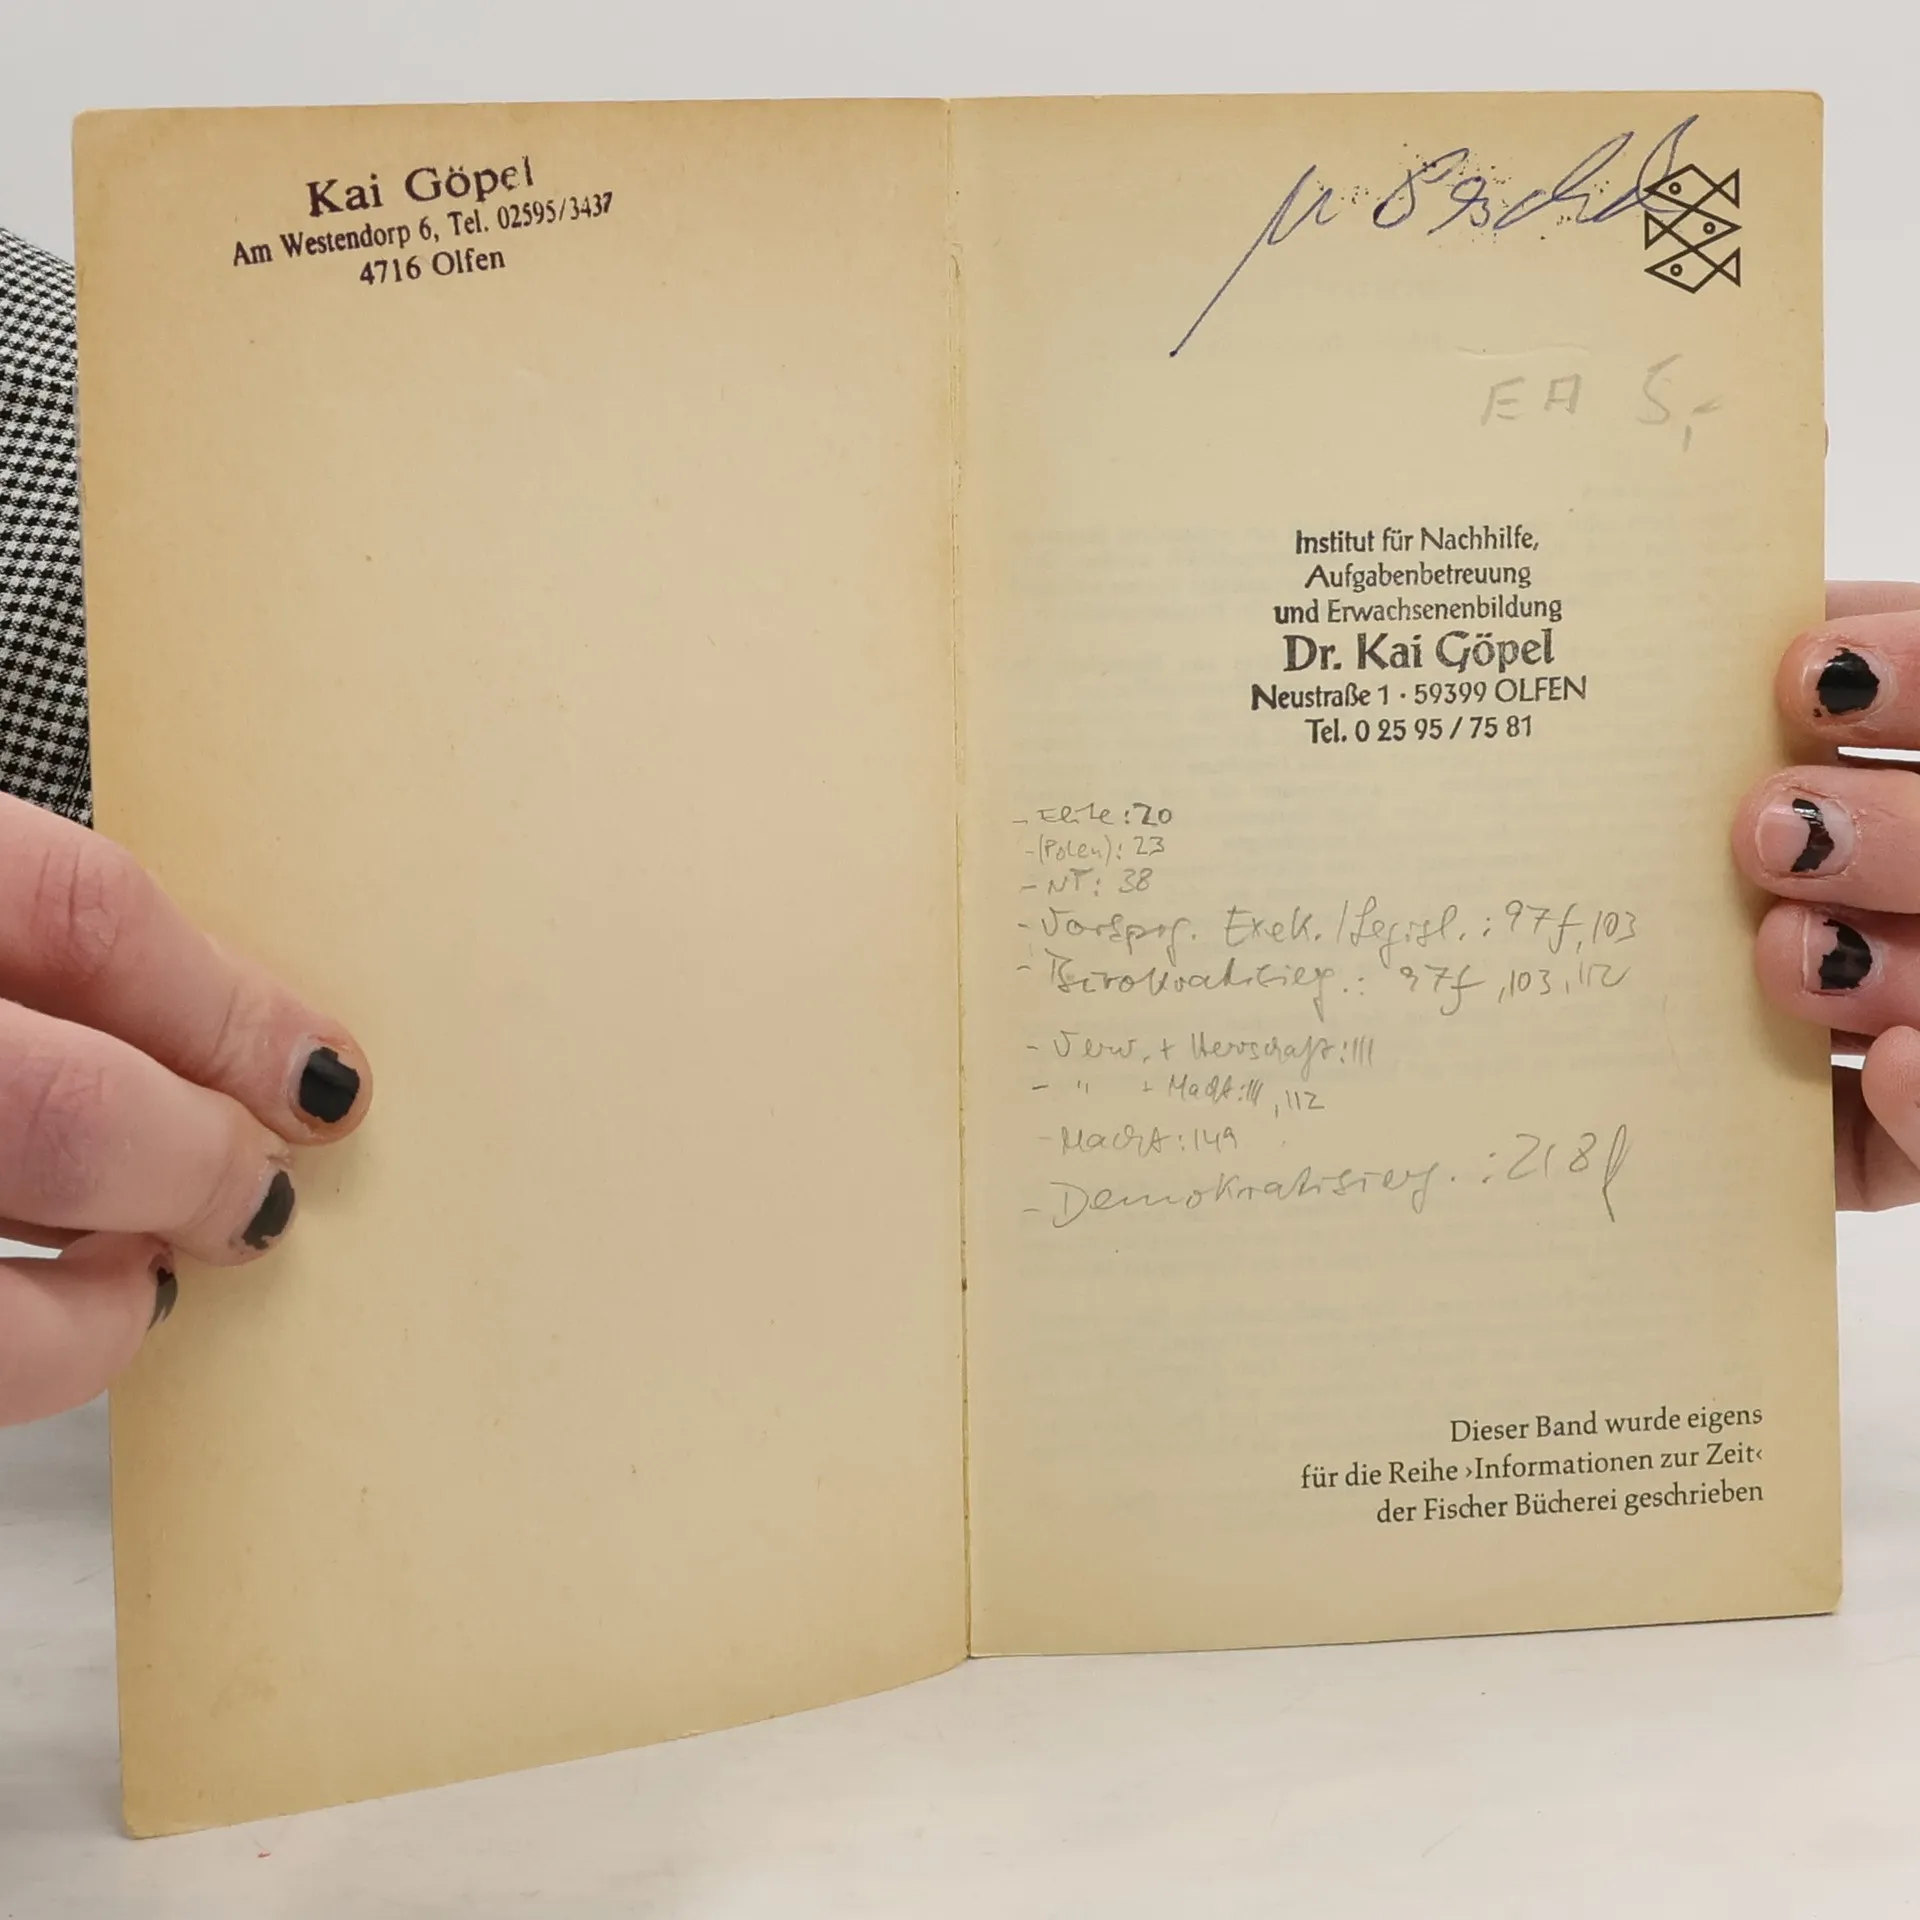 Kai Göpel
Am Westendorp 6, Tel. 02595/3437
4716 Olfen
EA 5,-
Institut für Nachhilfe,
Aufgabenbetreuung
und Erwachsenenbildung
Dr. Kai Göpel
Neustraße 1 · 59399 OLFEN
Tel. 0 25 95 / 75 81
- Elite: 20
- (Polen): 23
- NT: 38
- Exek./Legisl.: 97f, 103
- Bürokratisierg.: 97f, 103, 112
- Verw. + Herrschaft: 111
- " + Macht: 111, 112
- Macht: 149
- Demokratisierg.: 218f
Dieser Band wurde eigens
für die Reihe ›Informationen zur Zeit‹
der Fischer Bücherei geschrieben